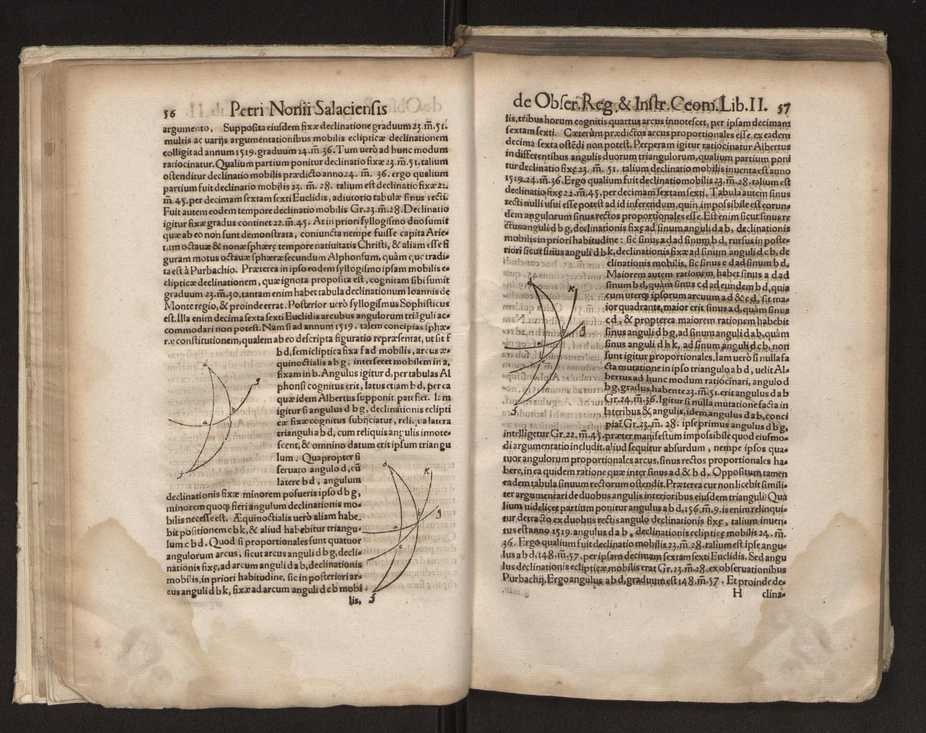 56 Petri Nonii Salaciensis
argumento. Supposita eiusdem fixæ declinatione graduum 23. m̃. 51.
multis ac varijs argumentationibus mobilis eclipticæ declinationem
colligit ad annum 1519. graduum 24. m̃. 36. Tum verò ad hunc modum
ratiocinatur. Qualium partium ponitur declinatio fixæ 23. m̃. 51. talium
ostenditur declinatio mobilis prædicto anno 24. m̃. 36. ergo qualium
partium fuit declinatio mobilis 23. m̃. 28. talium est declinatio fixæ 22.
m̃. 45. per decimam sextam sexti Euclidis, adiutorio tabulæ sinus recti.
Fuit autem eodem tempore declinatio mobilis Gr. 23. m̃. 28. Declinatio
igitur fixæ gradus continet 22. m̃. 45. At in priori syllogismo duo sumit
quæ ab eo non sunt demonstrata, coniuncta nempe fuisse capita Arie-
tum octauæ & nonæ sphæræ tempore natiuitatis Christi, & aliam esse fi
guram motus octauæ sphæræ secundum Alphonsum, quàm quæ tradi-
ta est à Purbachio. Præterea in ipso eodem syllogismo ipsam mobilis e-
clipticæ declinationem, quæ ignota proposita est, cognitam sibi sumit
graduum 23. m̃. 30. tantam enim habet tabula declinationum Ioannis de
Monteregio, & proinde errat. Posterior verò syllogismus Sophisticus
est. Illa enim decima sexta sexti Euclidis arcubus angulorum trianguli ac-
commodari non potest. Nam si ad annum 1519. talem concipias sphæ-
ræ constitutionem, qualem ab eo descripta figuratio repræsentat, ut sit f
b d, semicliptica fixa f a d mobilis, arcus æ-
quinoctialis a b g, intersecet mobilem in a,
fixam in b. Angulus igitur d, per tabulas Al
phonsi cognitus erit, latus etiam b d, per ea
quæ idem Albertus supponit patefiet. Item
igitur si angulus d b g, declinationis eclipti
cæ fixæ cognitus subijciatur, reliqua latera
trianguli a b d, cum reliquis angulis innote-
scent, & omnino datum erit ipsum triangu
lum. Quapropter si
seruato angulo d, cũ
latere b d, angulum
declinationis fixæ minorem posueris ipso d b g,
minorem quoq; fieri angulum declinationis mo-
bilis necesse est. Æquinoctialis verò aliam habe-
bit positionem c b k, & aliud habebitur triangu-
lum c b d. Quod si proportionales sunt quatuor
angulorum arcus, sicut arcus anguli d b g, decli-
nationis fixę, ad arcum anguli d a b, declinationis
mobilis, in priori habitudine, sic in posteriori ar-
cus anguli d b k, fixæ ad arcum anguli d c b mobi
lis,
de Obser. Reg. & Instr. Ceom. Lib. II. 57
lis, tribus horum cognitis quartus arcus innotescet, per ipsam decimam
sextam sexti. Cæterùm prædictos arcus proportionales esse, ex eadem
decima sexta ostẽdi non potest. Perperam igitur ratiocinatur Albertus
in differentibus angulis duorum triangulorum, qualium partium poni
tur declinatio fixę 23. m̃. 51. talium declinatio mobilis inuenta est anno
1519. 24. m̃. 36. Ergo qualium fuit declinatio mobilis 23. m̃. 28. talium est
declinatio fixę 22. m̃. 45. per decimam sextam sexti. Tabula autem sinus
recti nulli usui esse potest ad id inferendum, quin impossibile est eorun-
dem angulorum sinus rectos proportionales esse. Est enim sicut sinus re
ctus anguli d b g, declinationis fixę ad sinum anguli d a b, declinationis
mobilis in priori habitudine: sic sinus a d ad sinum b d, rursus in poste-
riori sicut sinus anguli d b k, declinationis fixæ ad sinum anguli d c b, de
clinationis mobilis, sic sinus c d ad sinum b d.
Maiorem autem rationem habet sinus a d ad
sinum b d, quàm sinus c d ad eundem b d, quia
cum uterq; ipsorum arcuum a d & c d, sit ma-
ior quadrante, maior erit sinus a d, quàm sinus
c d, & propterea maiorem rationem habebit
sinus anguli d b g, ad sinum anguli d a b, quàm
sinus anguli d b k, ad sinum anguli d c b, non
sunt igitur proportionales. Iam verò si nulla fa
cta mutatione in ipso triangulo a b d, uelit Al-
bertus ad hunc modum ratiocinari, angulo d
b g, gradus habente 23. m̃. 51. erit angulus d a b
Gr. 24. m̃. 36. Igitur si nulla mutatione facta in
lateribus & angulis, idem angulus d a b, conci
piat̃ Gr. 23. m̃. 28. ipse primus angulus d b g,
intelligetur Gr. 22. m̃. 45. præter manifestum impossibile quod eiusmo-
di argumentatio includit, aliud sequitur absurdum, nempe ipsos qua-
tuor angulorum proportionales arcus, sinus rectos proportionales ha-
bere, in ea quidem ratione quæ inter sinus a d & b d. Oppositum tamen
ea dem tabula sinuum rectorum ostendit. Præterea cur non licebit simili-
ter argumentari de duobus angulis interioribus eiusdem trianguli? Qua
lium uidelicet partium ponitur angulus a b d, 156. m̃. 9. is enim relinqui-
tur, detracto ex duobus rectis angulo declinationis fixę, talium inuen-
tus est anno 1519. angulus d a b, declinationis eclipticę mobilis 24. m̃.
36. Ergo qualium fuit declinatio mobilis 23. m̃. 28. talium est ipse angu-
lus a b d, 148. m̃. 57. per ipsam decimam sextam sexti Euclidis. Sed angu
lus declinationis eclipticæ mobilis erat Gr. 23. m̃. 28. ex obseruationibus
Purbachij. Ergo angulus a b d, graduum est 148. m̃. 57. Et proinde de-
H clina-